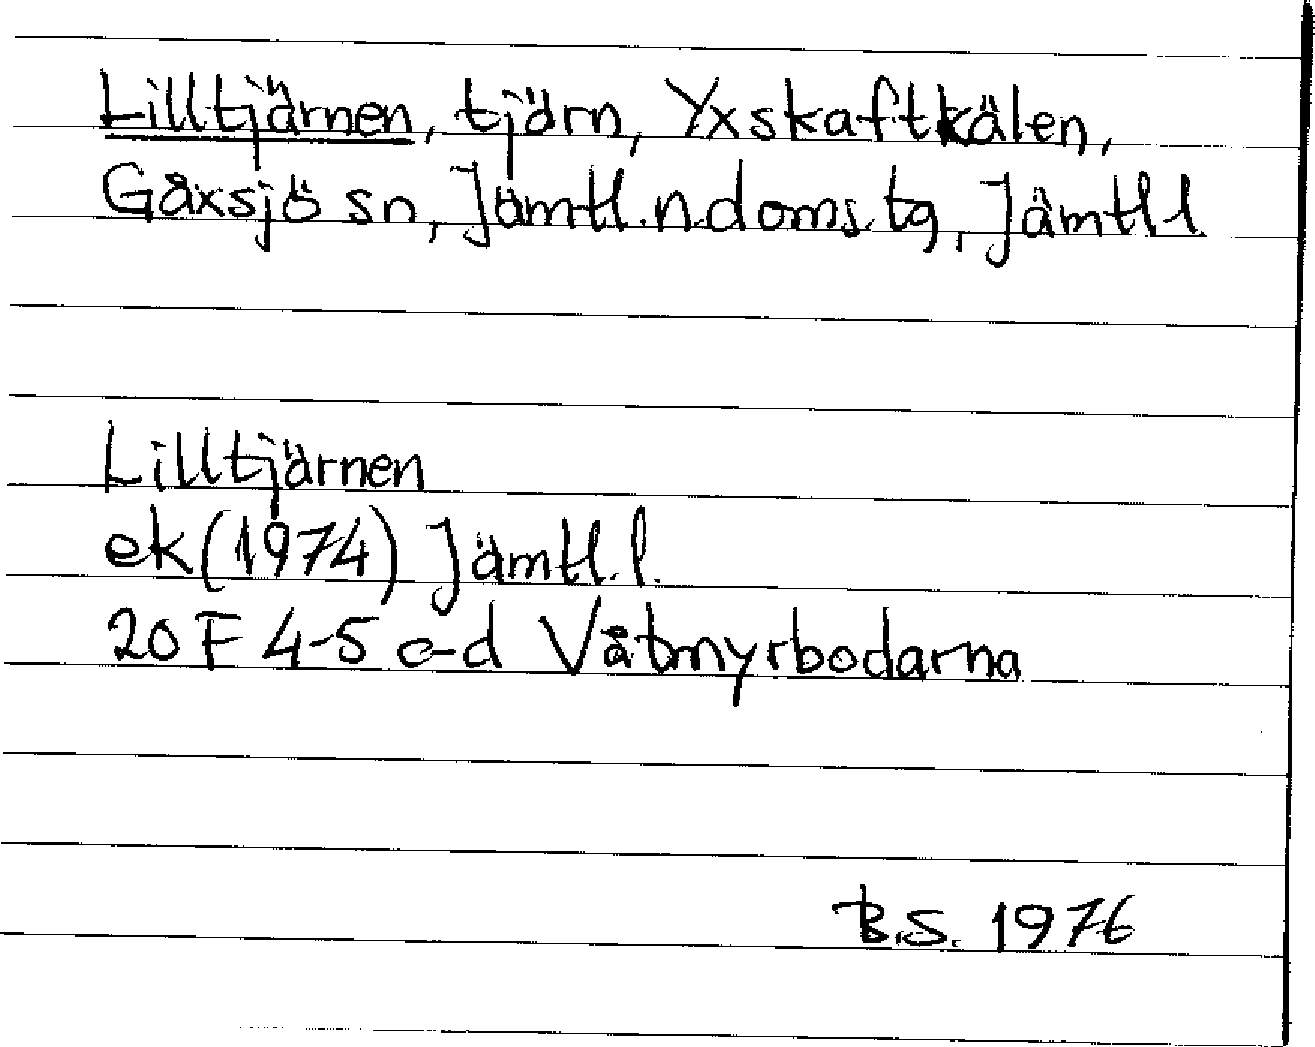 Lilltjärnen, tjärn, Yxskaftkälen,
Gåxsjö sn, Jämtl.n.doms.tg, Jämtl l
Lilltjärnen
ek (1974) Jämtl. l.
20 F 4-5 c-d Våtmyrbodarna
B.S. 1976